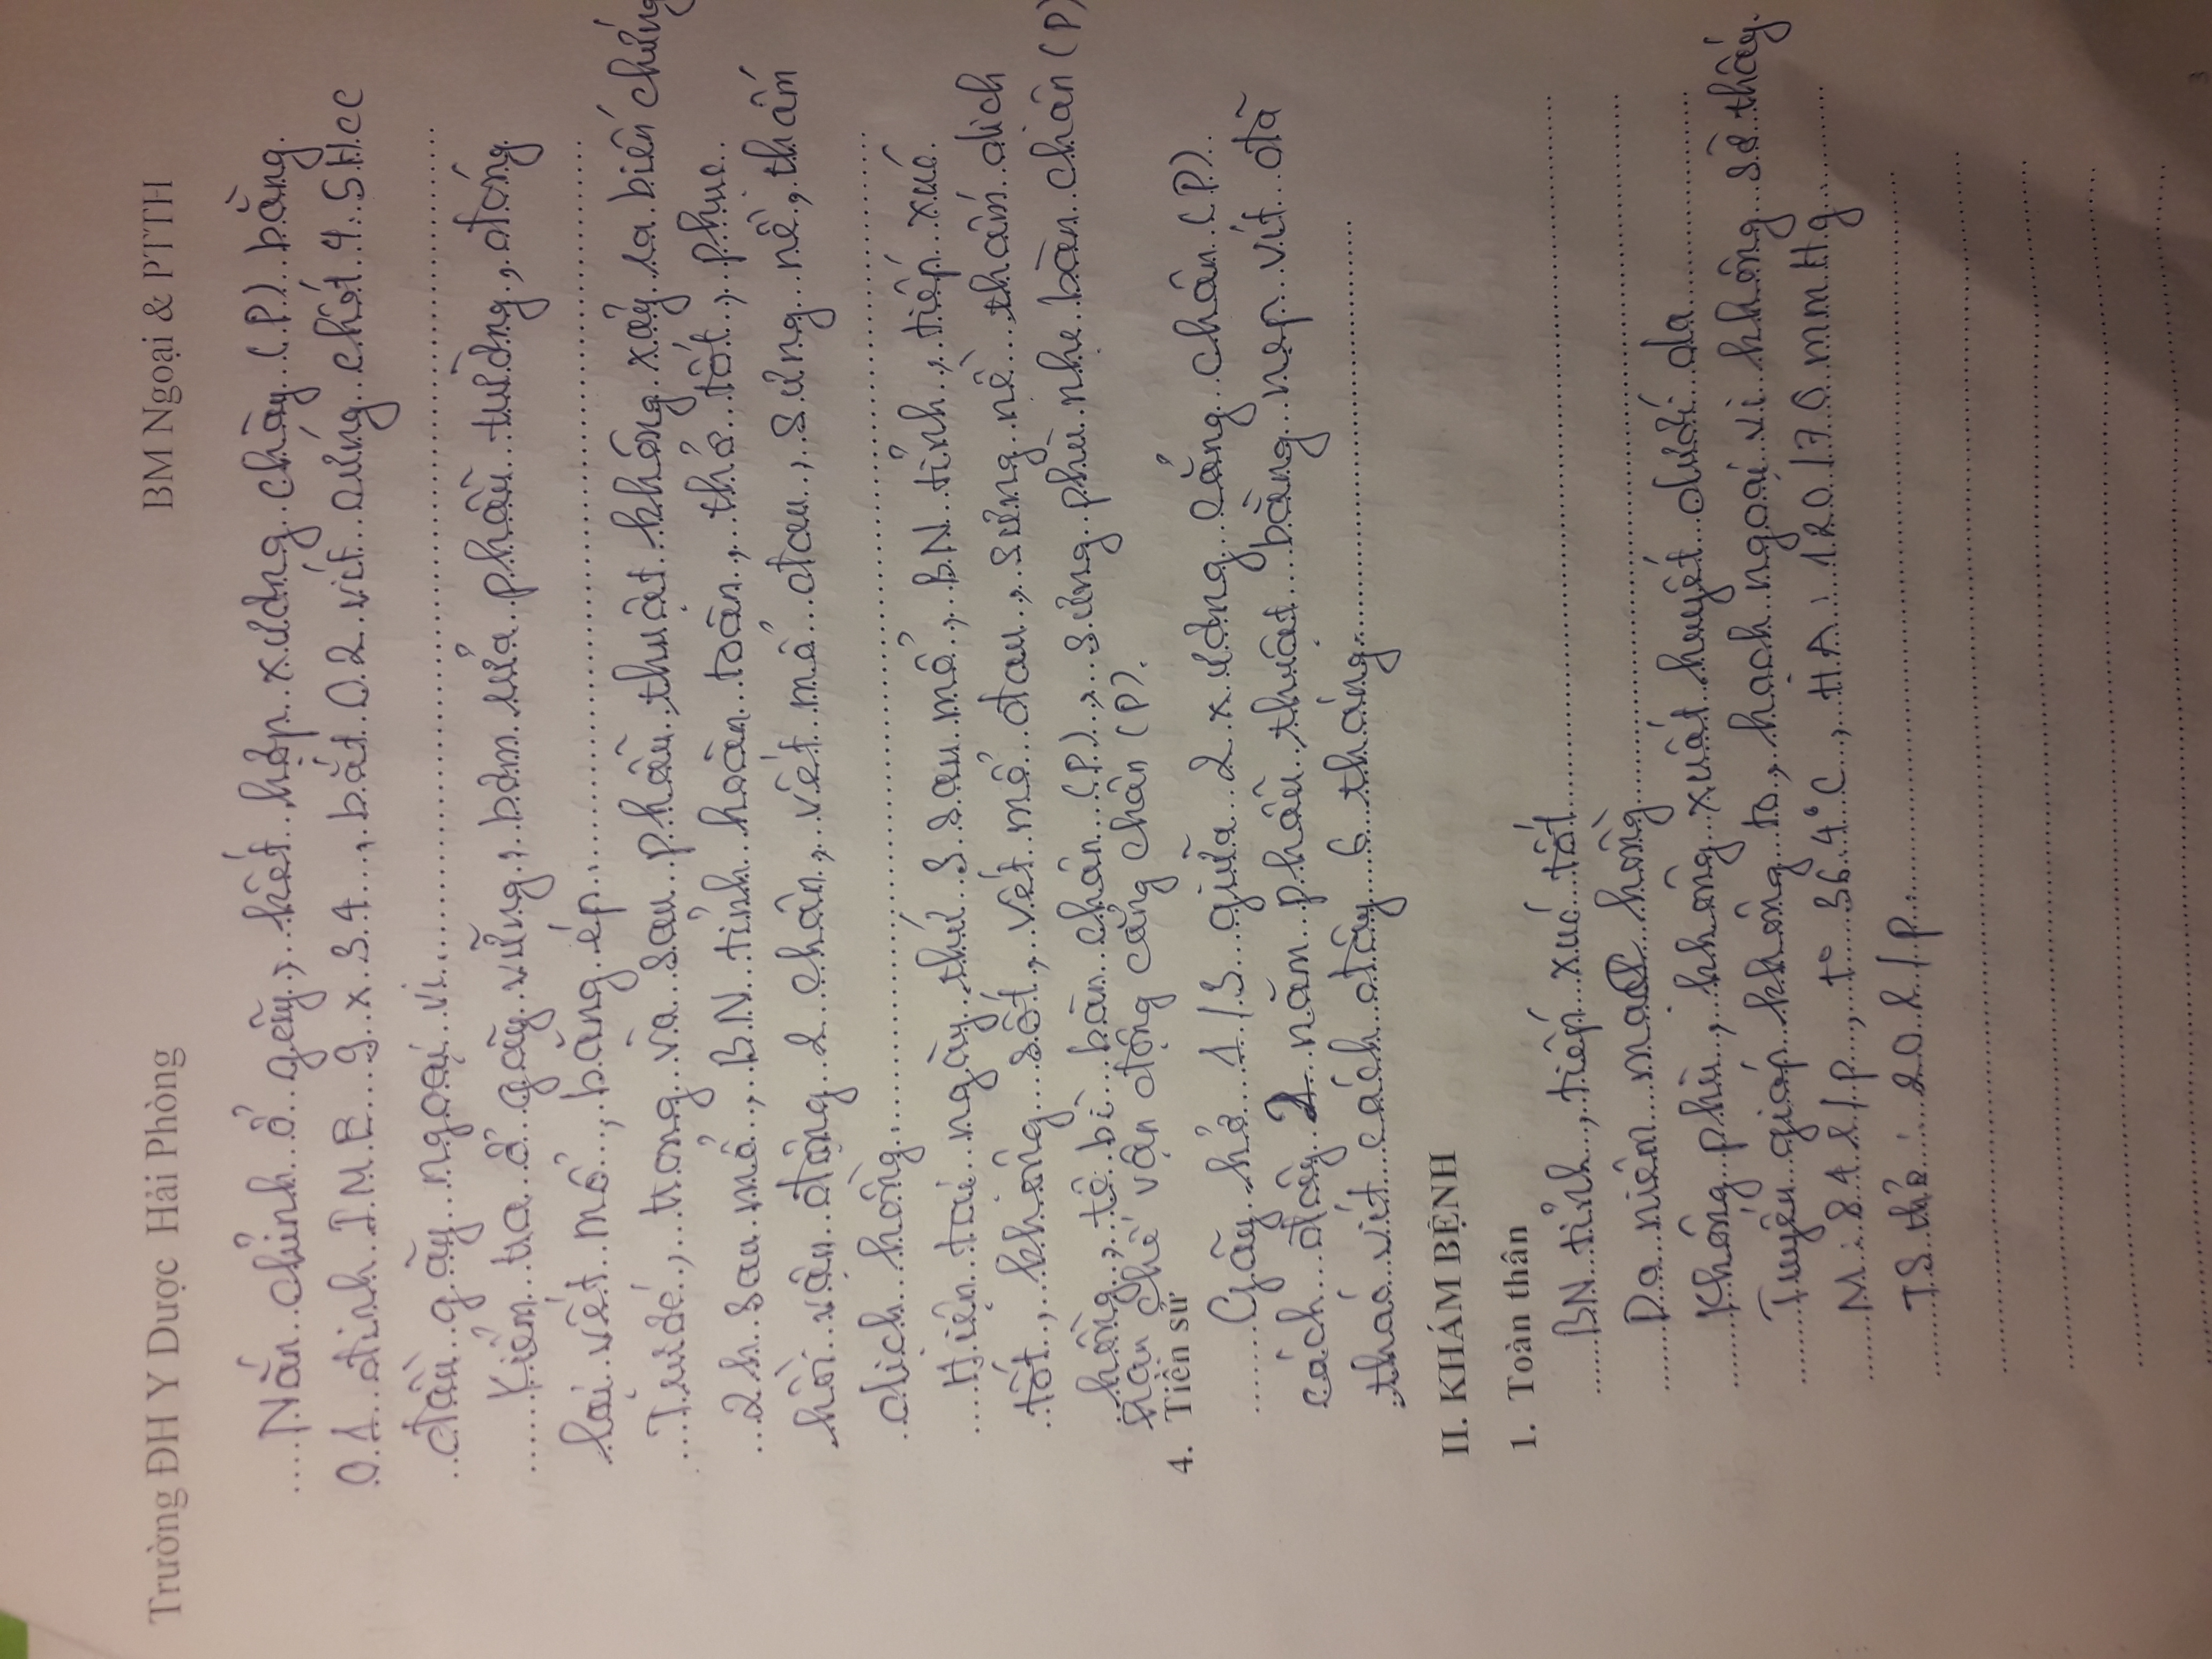 Trường ĐH Y Dược Hải Phòng BM Ngoại & PTTH
Nắn chỉnh ổ gãy, kết hợp xương chày (P) bằng
01 đinh I.M.E 9 x 34, bắt 02 vít cứng chốt 4.5 Hcc
đầu gãy ngoại vi
Kiểm tra ổ gãy vững, bơm rửa phẫu trường, đóng
lại vết mổ, băng ép.
Trước, trong và sau phẫu thuật không xảy ra biến chứng
2h sau mổ, BN tỉnh hoàn toàn, thở tốt, phục
hồi vận động 2 chân, vết mổ đau, sưng nề, thấm
dịch hồng.
Hiện tại ngày thứ 3 sau mổ, BN tỉnh, tiếp xúc
tốt, không sốt, vết mổ đau, sưng nề thấm dịch
hồng, tê bì bàn chân (P), sưng phù nhẹ bàn chân (P)
hạn chế vận động cẳng chân (P).
4. Tiền sử
Gãy hở 1/3 giữa 2 xương cẳng chân (P)
cách đây 2 năm phẫu thuật bằng nẹp vít đã
tháo vít cách đây 6 tháng.
II. KHÁM BỆNH
1. Toàn thân
BN tỉnh, tiếp xúc tốt
Da niêm mạc hồng
Không phù, không xuất huyết dưới da
Tuyến giáp không to, hạch ngoại vi không sờ thấy.
M: 84 l/p, t° 36.4°C, HA: 120/70 mmHg
TS thở: 20 l/p.
3